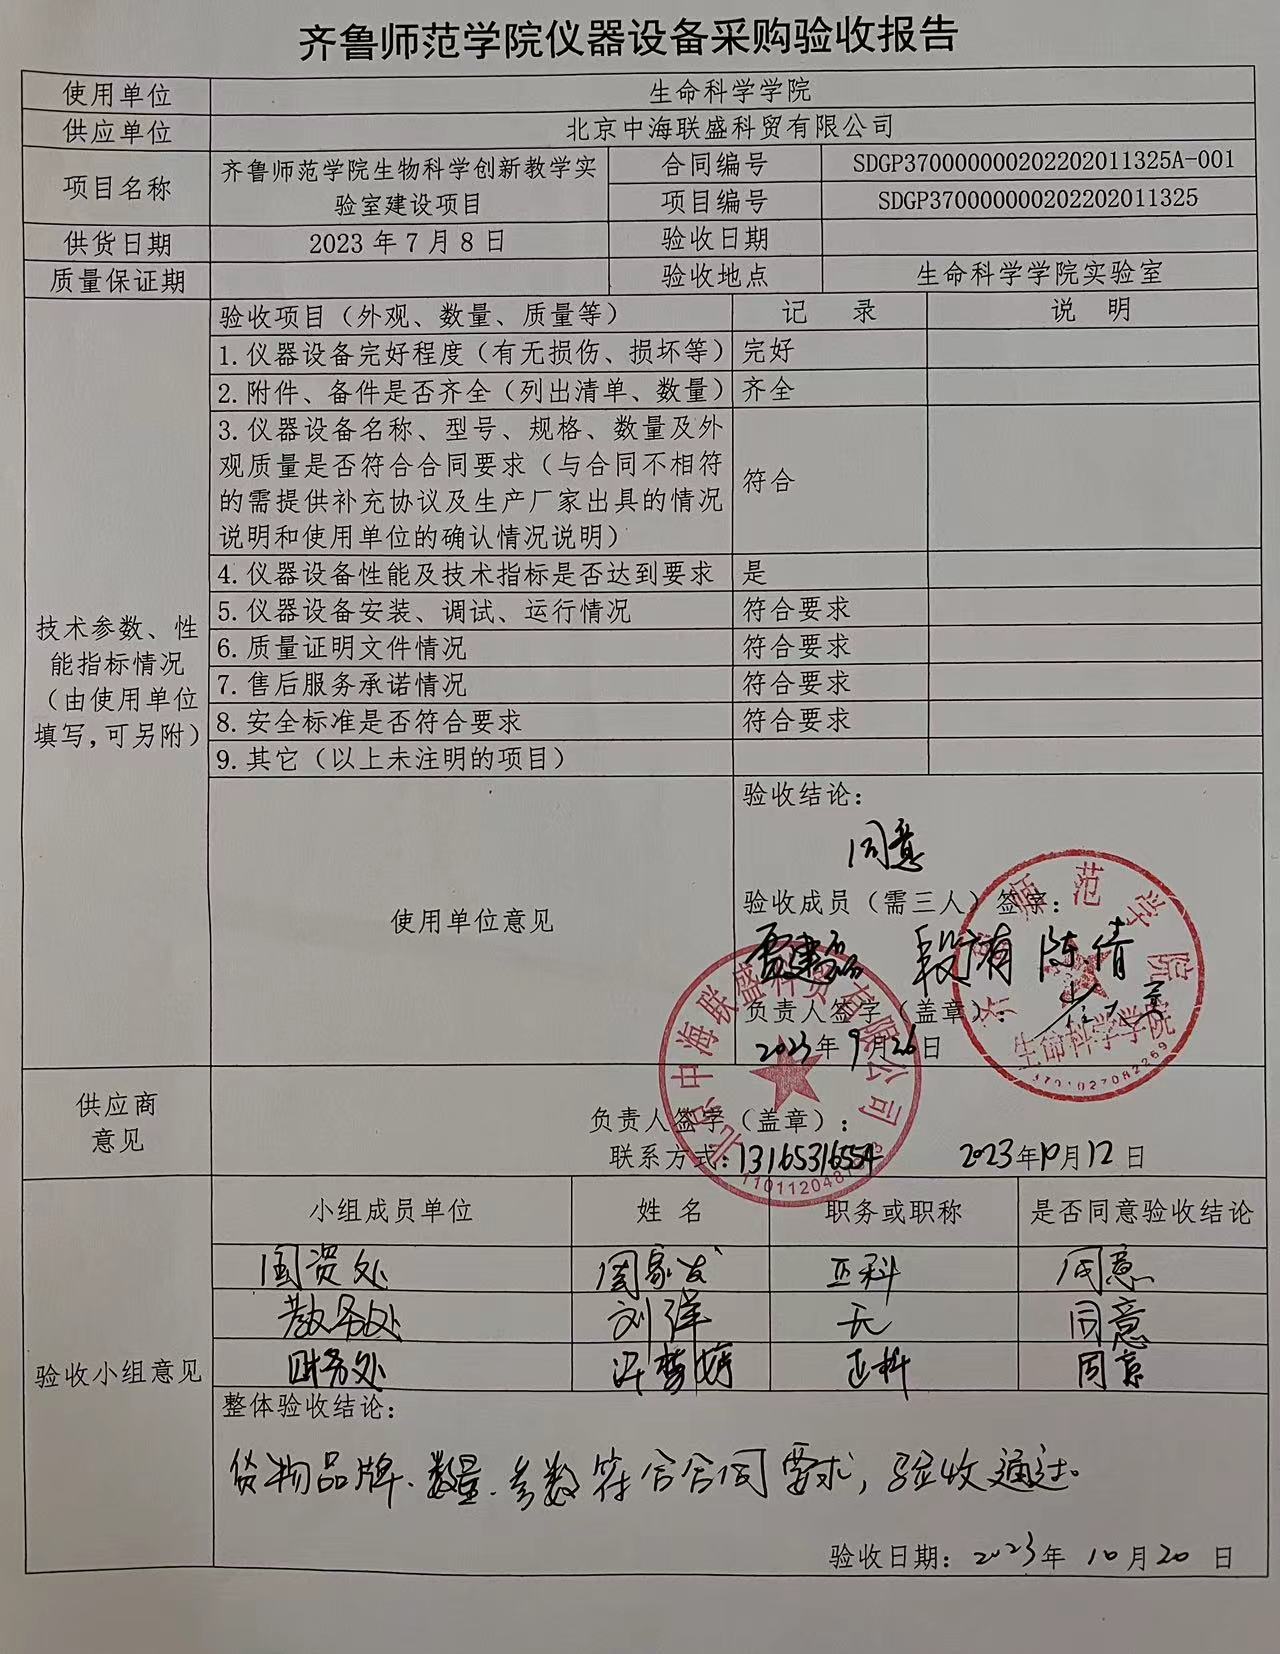 齐鲁师范学院仪器设备采购验收报告
使用单位 生命科学学院
供应单位 北京中海联盛科贸有限公司
项目名称 齐鲁师范学院生物科学创新教学实
验室建设项目
合同编号 SDGP370000000202202011325A-001
项目编号 SDGP370000000202202011325
供货日期 2023 年 7 月 8 日 验收日期
质量保证期 验收地点 生命科学学院实验室
技术参数、性
能指标情况
（由使用单位
填写,可另附）
验收项目（外观、数量、质量等） 记 录 说 明
1.仪器设备完好程度（有无损伤、损坏等） 完好
2.附件、备件是否齐全（列出清单、数量） 齐全
3.仪器设备名称、型号、规格、数量及外
观质量是否符合合同要求（与合同不相符
的需提供补充协议及生产厂家出具的情况
说明和使用单位的确认情况说明）
符合
4.仪器设备性能及技术指标是否达到要求 是
5.仪器设备安装、调试、运行情况 符合要求
6.质量证明文件情况 符合要求
7.售后服务承诺情况 符合要求
8.安全标准是否符合要求 符合要求
9.其它（以上未注明的项目）
使用单位意见
验收结论：
同意
验收成员（需三人）签字：
雷建磊 段 陈倩
负责人签字（盖章）：
2023年 9月26日
齐鲁师范学院
生命科学学院
3701027082269
供应商
意见
负责人签字（盖章）：
联系方式:13165316554 2023年10月12日
北京中海联盛科贸有限公司
验收小组意见
小组成员单位 姓 名 职务或职称 是否同意验收结论
国资处 周家发 正科 同意
教务处 刘洋 无 同意
财务处 正科 同意
整体验收结论：
货物品牌、数量、参数符合合同要求，验收通过。
验收日期：2023年 10月20 日